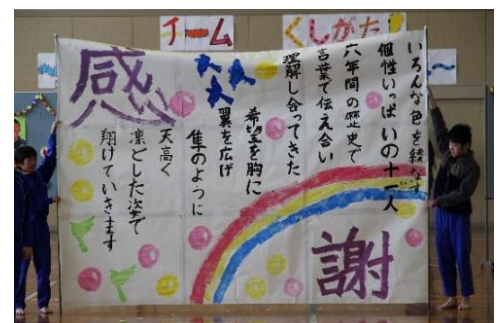 チーム
くしがた!
感
謝
いろんな色を綾なす
個性いっぱいの十一人
六年間の歴史で
言葉で伝え合い
理解し合ってきた
希望を胸に
翼を広げ
隼のように
天高く
凛とした姿で
翔けていきます